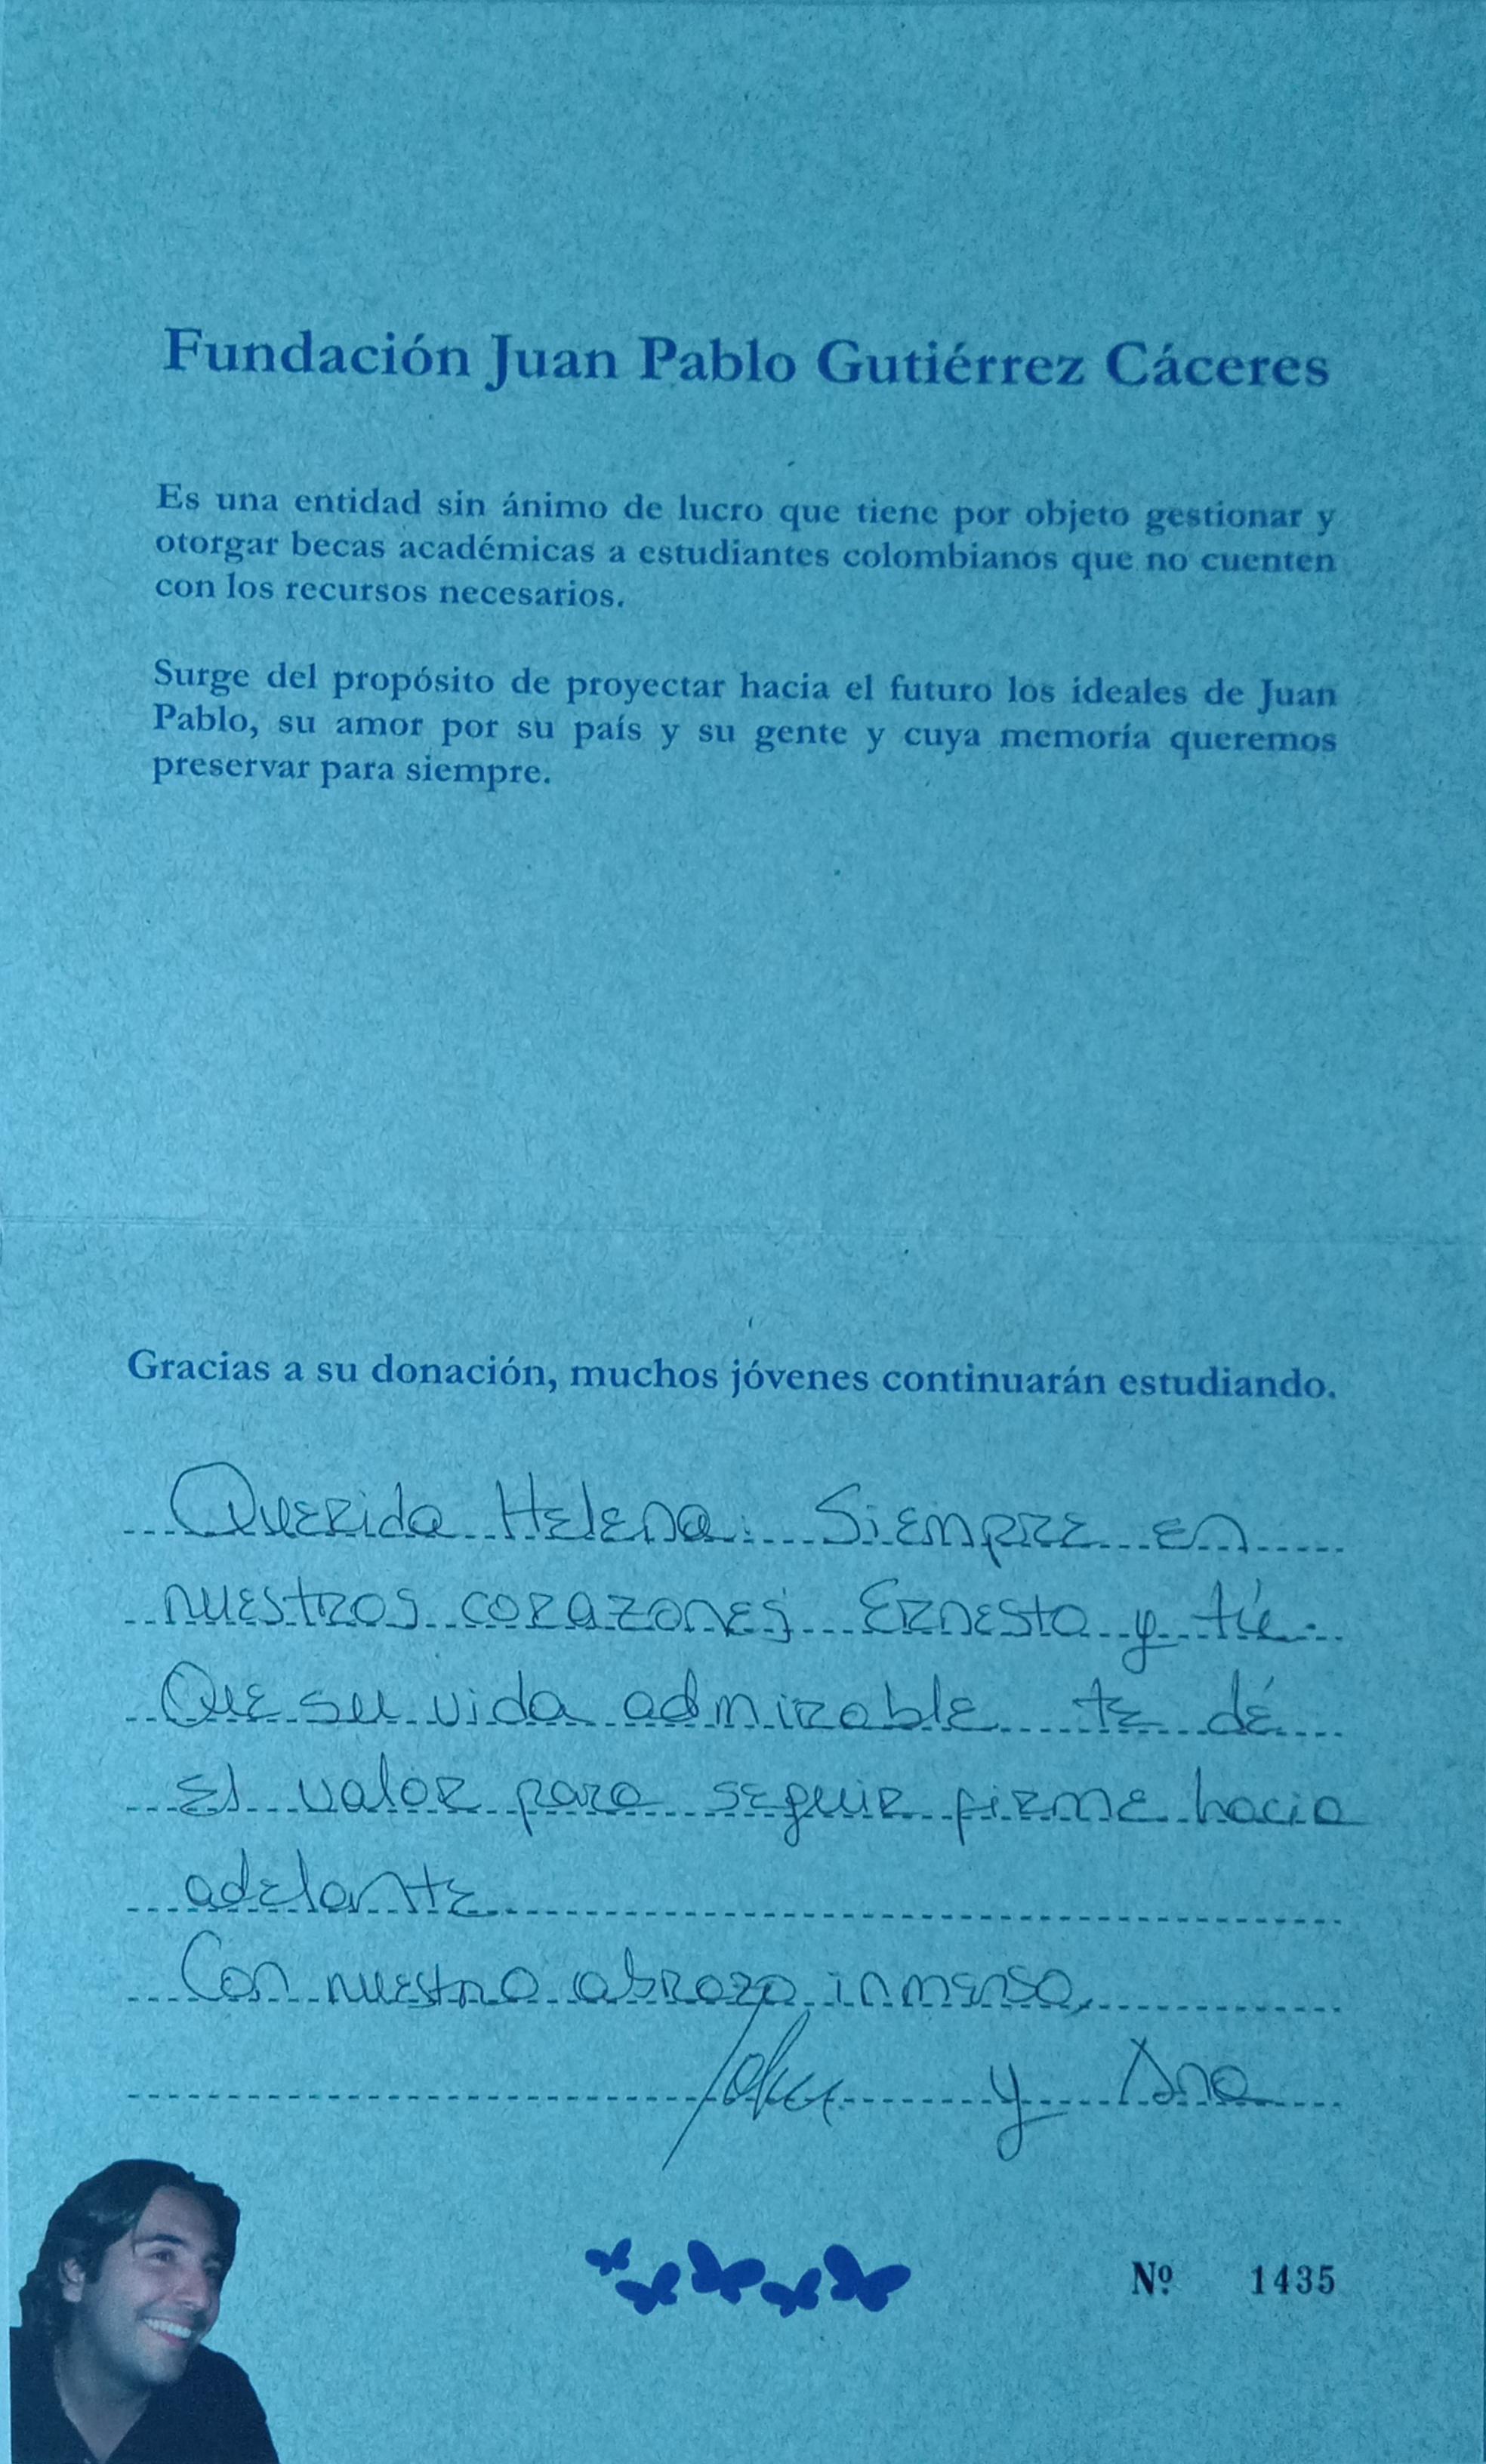 Fundación Juan Pablo Gutiérrez Cáceres
Es una entidad sin ánimo de lucro que tiene por objeto gestionar y
otorgar becas académicas a estudiantes colombianos que no cuenten
con los recursos necesarios.
Surge del propósito de proyectar hacia el futuro los ideales de Juan
Pablo, su amor por su país y su gente y cuya memoría queremos
preservar para siempre.
Gracias a su donación, muchos jóvenes continuarán estudiando.
Querida Helena: Siempre en
nuestros corazones Ernesto y tú.
Que su vida admirable te dé
el valor para seguir firme hacia
adelante
Con nuestro abrazo inmenso,
y Ana
Nº 1435